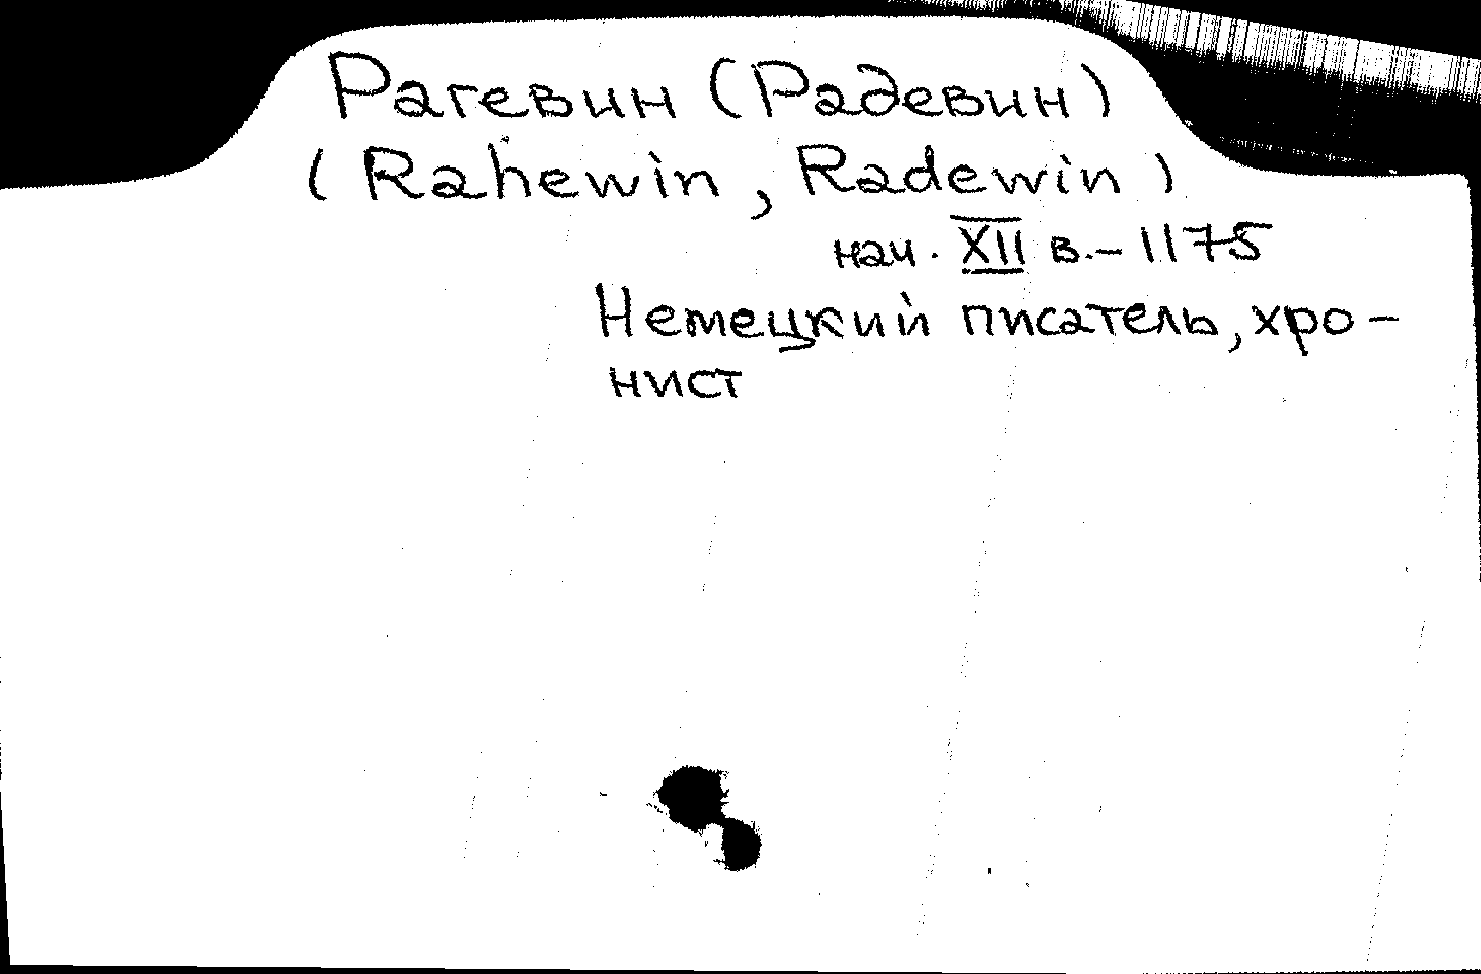 Рагевин (Радевин)
(Rahewin, Radewin)
нач. XII в. – 1175
Немецкий писатель, хро-
нист